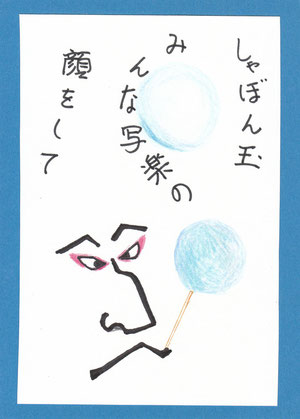 しゃぼん玉
みんな写楽の
顔をして